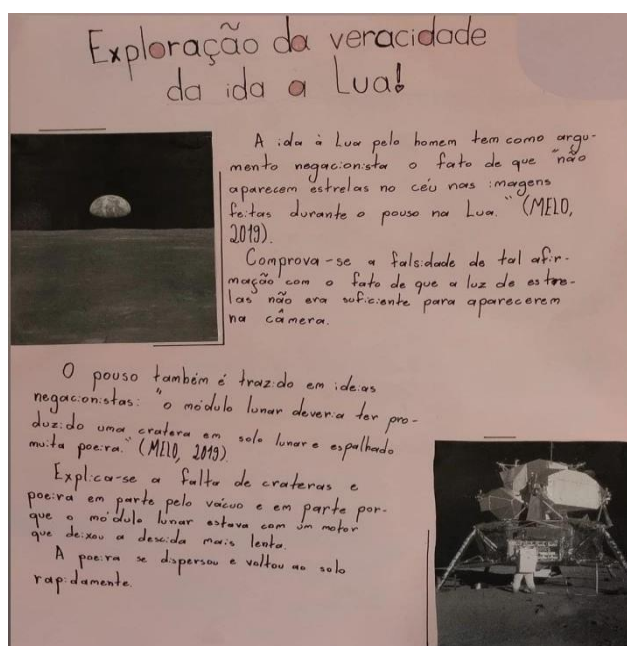 Exploração da veracidade
da ida a Lua!
A ida à Lua pelo homem tem como argu-
mento negacionista o fato de que "não
aparecem estrelas no céu nas imagens
feitas durante o pouso na Lua." (MELO,
2019).
Comprova-se a falsidade de tal afir-
mação com o fato de que a luz de estre-
las não era suficiente para aparecerem
na câmera.
O pouso também é trazido em ideias
negacionistas: "o módulo lunar deveria ter pro-
duzido uma cratera em solo lunar e espalhado
muita poeira." (MELO, 2019)
Explica-se a falta de crateras e
poeira em parte pelo vácuo e em parte por-
que o módulo lunar estava com um motor
que deixou a descida mais lenta.
A poeira se dispersou e voltou ao solo
rapidamente.